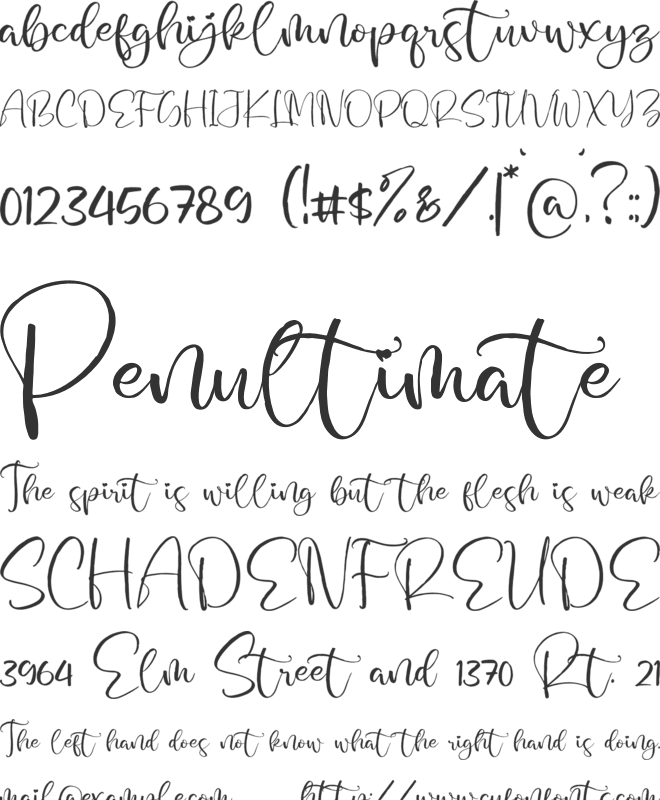 abcdefghijklmnopqrstuvwxyz
ABCDEFGHIJKLMNOPQRSTUVWXYZ
0123456789 (!#$%&/.|*`@´,?:;)
Penultimate
The spirit is willing but the flesh is weak
SCHADENFREUDE
3964 Elm Street and 1370 Rt. 21
The left hand does not know what the right hand is doing.
mail@example.com